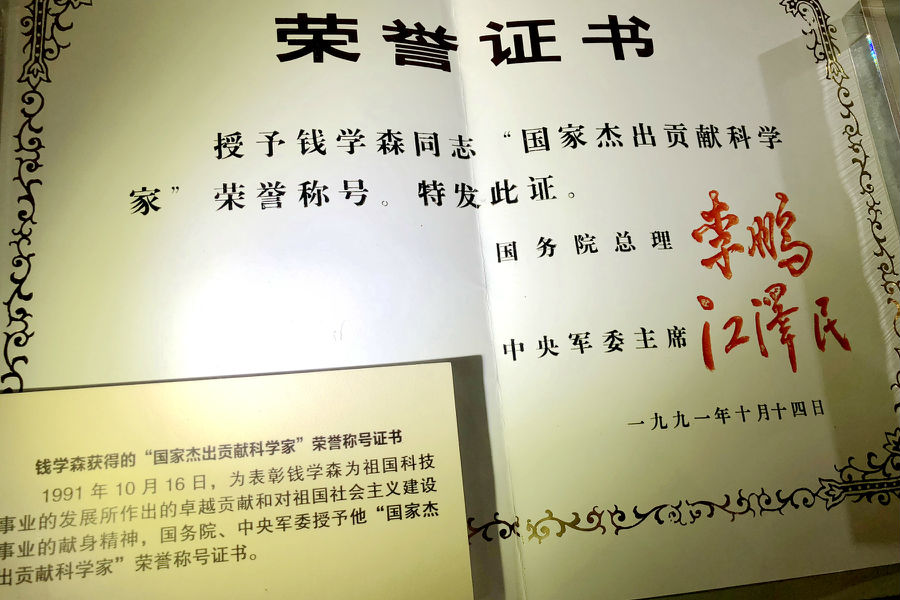 荣誉证书
授予钱学森同志“国家杰出贡献科学
家”荣誉称号。特发此证。
国务院总理 李鹏
中央军委主席 江泽民
一九九一年十月十四日
钱学森获得的“国家杰出贡献科学家”荣誉称号证书
1991年10月16日，为表彰钱学森为祖国科技
事业的发展所作出的卓越贡献和对祖国社会主义建设
事业的献身精神，国务院、中央军委授予他“国家杰
出贡献科学家”荣誉称号证书。